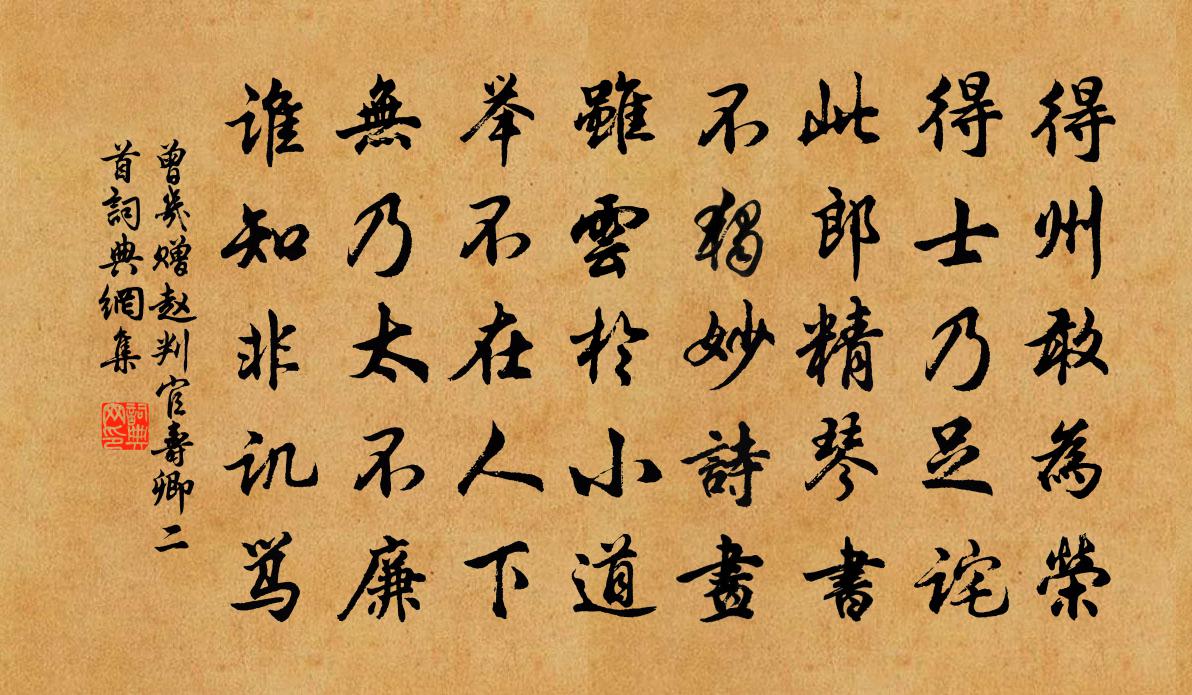 得州敢為榮
得士乃足詫
此郎精琴書
不獨妙詩畫
雖雲於小道
举不在人下
無乃太不廉
谁知非讥骂
曾幾赠赵判官壽卿二
首詞典網集
詞典
网印